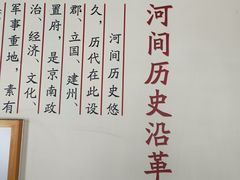 河间历史沿革
河间历史悠
久，历代在此设
郡、立国、建州、
置府，是京南政
治、经济、文化、
军事重地，素有